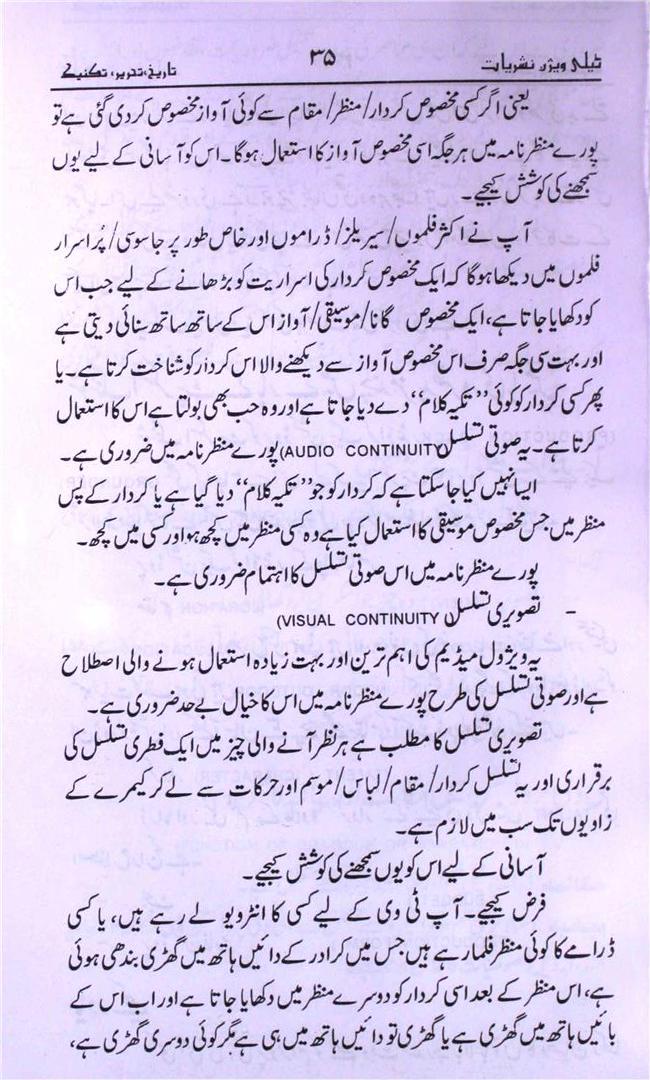 ٹیلی ویژن نشریات ۳۵ تاریخ، تحریر، تکنیک
یعنی اگر کسی مخصوص کردار/ منظر/ مقام سے کوئی آواز مخصوص کر دی گئی ہے تو
پورے منظر نامہ میں ہر جگہ اسی مخصوص آواز کا استعمال ہوگا۔ اس کو آسانی کے لیے یوں
سمجھنے کی کوشش کیجیے۔
آپ نے اکثر فلموں/ سیریلز/ ڈراموں اور خاص طور پر جاسوسی/ پُراسرار
فلموں میں دیکھا ہوگا کہ ایک مخصوص کردار کی اسراریت کو بڑھانے کے لیے جب اس
کو دکھایا جاتا ہے، ایک مخصوص گانا/ موسیقی/ آواز اس کے ساتھ ساتھ سنائی دیتی ہے
اور بہت سی جگہ صرف اس مخصوص آواز سے دیکھنے والا اس کردار کو شناخت کرتا ہے۔ یا
پھر کسی کردار کو کوئی ”تکیہ کلام“ دے دیا جاتا ہے اور وہ جب بھی بولتا ہے اس کا استعمال
کرتا ہے۔ یہ صوتی تسلسل AUDIO CONTINUITY) پورے منظر نامہ میں ضروری ہے۔
ایسا نہیں کیا جا سکتا ہے کہ کردار کو جو ”تکیہ کلام“ دیا گیا ہے یا کردار کے پس
منظر میں جس مخصوص موسیقی کا استعمال کیا ہے وہ کسی منظر میں کچھ ہو اور کسی میں کچھ۔
پورے منظر نامہ میں اس صوتی تسلسل کا اہتمام ضروری ہے۔
- تصویری تسلسل VISUAL CONTINUITY)
یہ ویژول میڈیم کی اہم ترین اور بہت زیادہ استعمال ہونے والی اصطلاح
ہے اور صوتی تسلسل کی طرح پورے منظر نامہ میں اس کا خیال بے حد ضروری ہے۔
تصویری تسلسل کا مطلب ہے ہر نظر آنے والی چیز میں ایک فطری تسلسل کی
برقراری اور یہ تسلسل کردار/ مقام/ لباس/ موسم اور حرکات سے لے کر کیمرے کے
زاویوں تک سب میں لازم ہے۔
آسانی کے لیے اس کو یوں سمجھنے کی کوشش کیجیے۔
فرض کیجیے۔ آپ ٹی وی کے لیے کسی کا انٹرویو لے رہے ہیں، یا کسی
ڈرامے کا کوئی منظر فلما رہے ہیں جس میں کرادر کے دائیں ہاتھ میں گھڑی بندھی ہوئی
ہے، اس منظر کے بعد اسی کردار کو دوسرے منظر میں دکھایا جاتا ہے اور اب اس کے
بائیں ہاتھ میں گھڑی ہے یا گھڑی تو دائیں ہاتھ میں ہی ہے مگر کوئی دوسری گھڑی ہے،